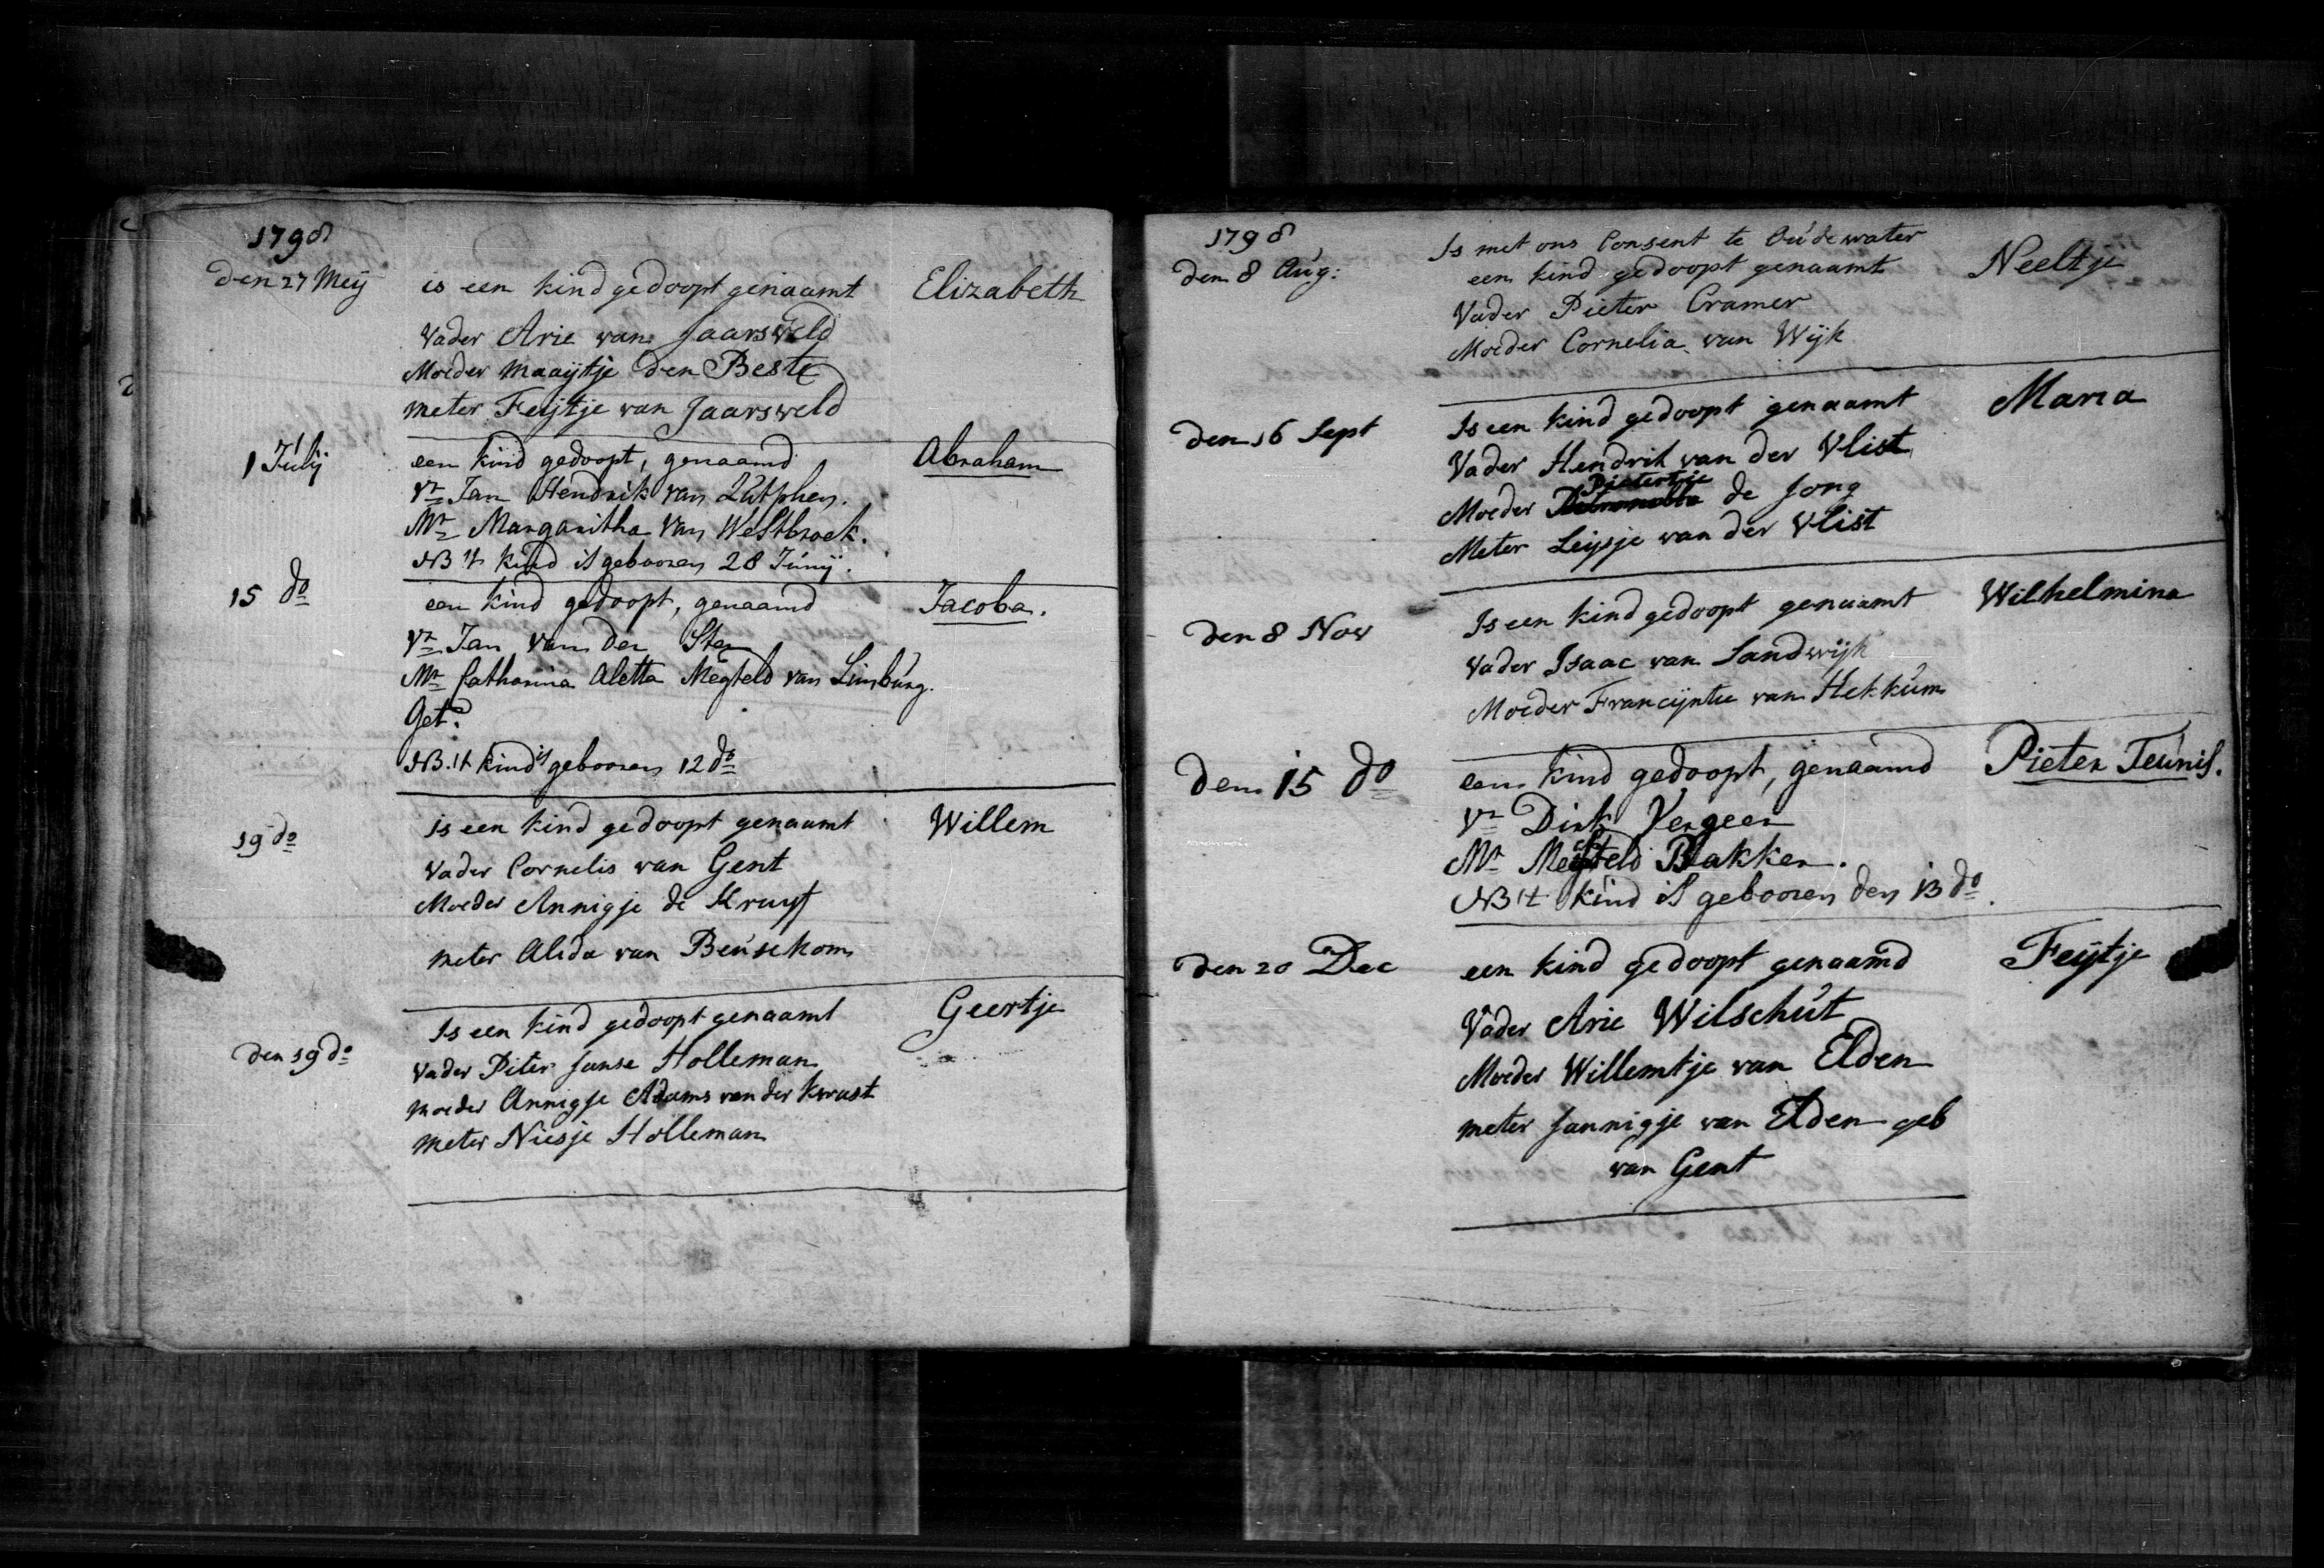 1798
den 27 Meij is een kind gedoopt genaamt Elizabeth
Vader Arie van Jaarsveld
Moeder Maaijtje den Beste
meter Feijtje van Jaarsveld
1 Julij een kind gedoopt, genaamd Abraham
Vr Jan Hendrik van Zutphen.
Mr Margaritha van Westbroek.
NB 't kind is gebooren 28 Junij.
15 do een kind gedoopt, genaamd Jacoba.
Vr Jan van der Sten
Mr Catharina Aletta Megteld van Limburg.
Get:
NB. 't kind is gebooren 12 do
19 do is een kind gedoopt genaamt Willem
Vader Cornelis van Gent
Moeder Annigje de Kruyf
meter Alida van Beusekom
den 19 do Is een kind gedoopt genaamt Geertje
Vader Piter Janse Holleman
moeder Annigje Adams van der Kwast
meter Niesje Holleman
1798
den 8 Aug: Is met ons Consent te Oudewater
een kind gedoopt genaamt Neeltje
Vader Pieter Cramer
Moeder Cornelia van Wijk
den 16 Sept Is een kind gedoopt genaamt Maria
Vader Hendrik van der Vlist
Pietertje
Moeder de Jong
Meter Leijsje van der Vlist
den 8 Nov Is een kind gedoopt genaamt Wilhelmina
Vader Isaac van Sandwijk
Moeder Francijntie van Hekkum
den 15 do een kind gedoopt, genaamd Pieter Teunis.
Vr Dirk Vergeer
Mr Megteld Bakker.
NB 't kind is gebooren den 13 do.
den 20 Dec een kind gedoopt genaamd Feijtje
Vader Arie Wilschut
Moeder Willemtje van Elden
meter Jannigje van Elden geb
van Gent